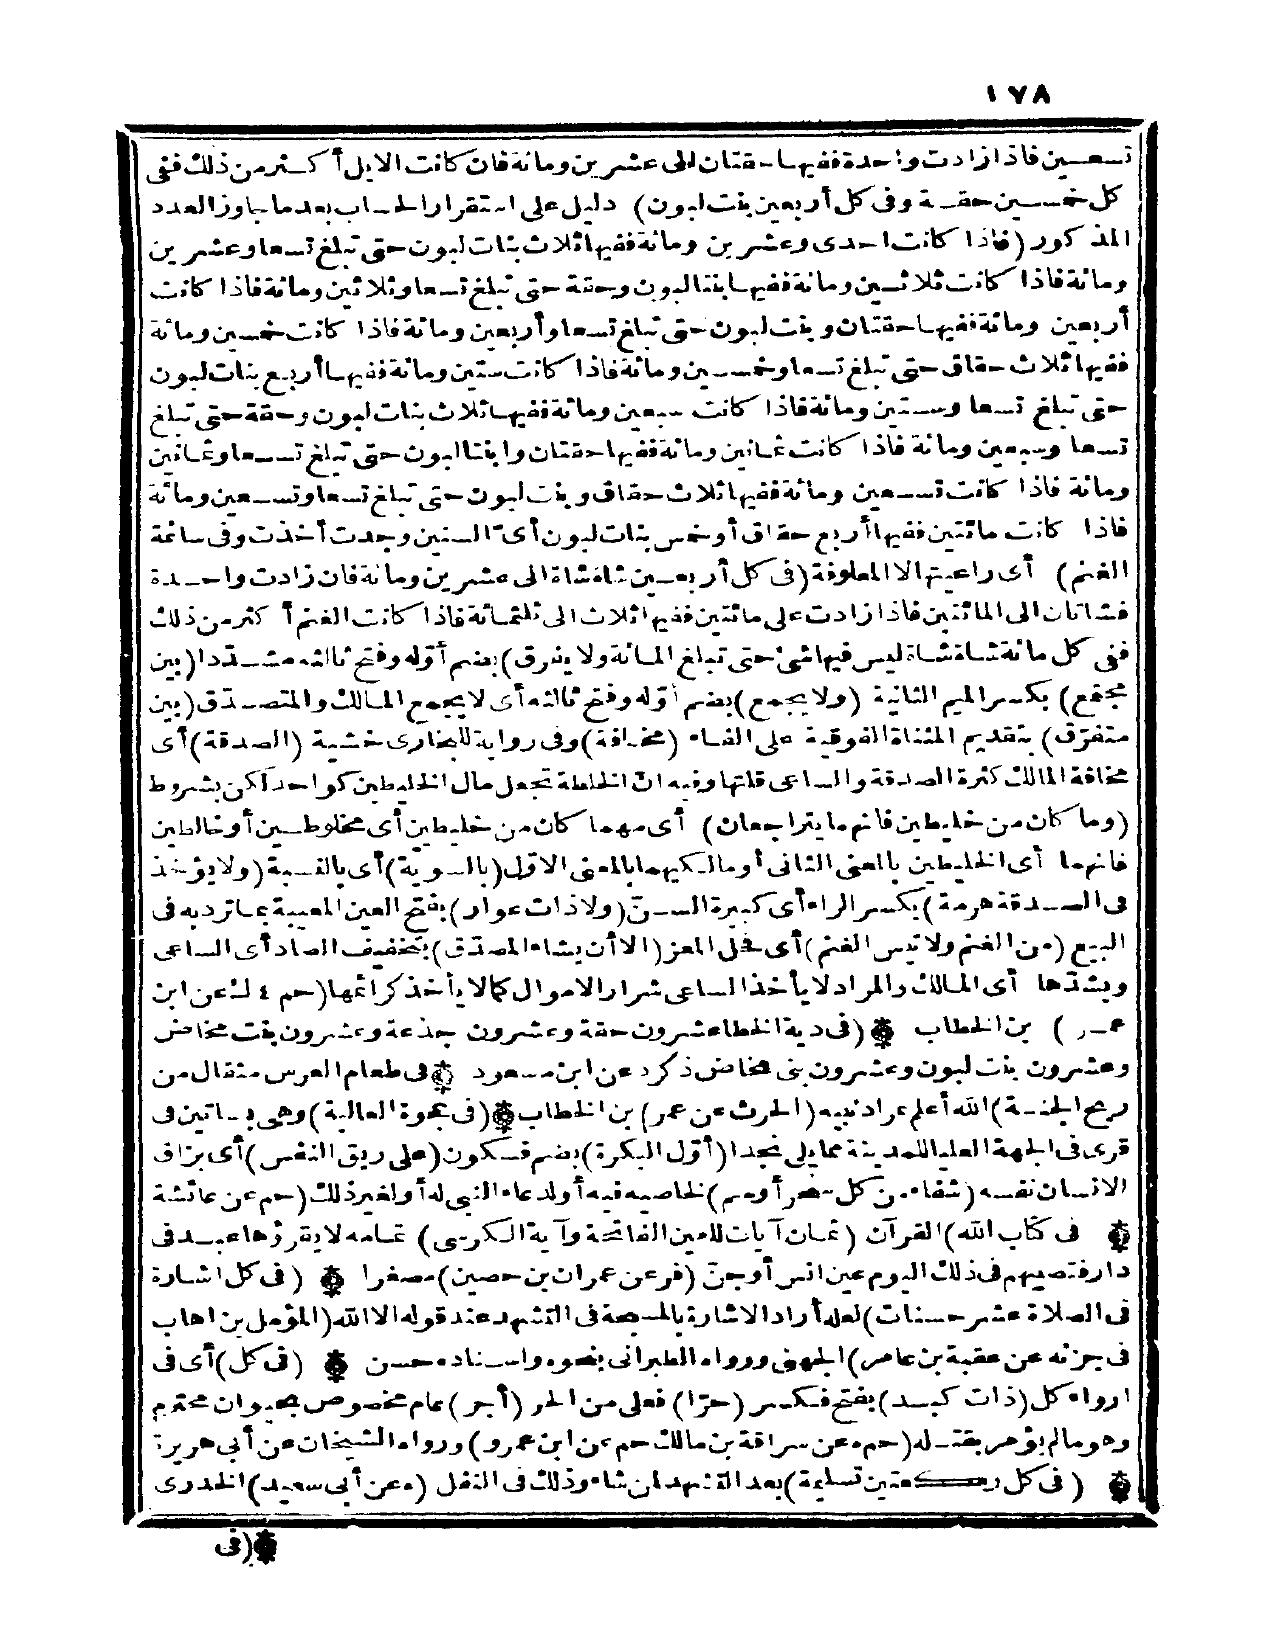 ١٧٨
تسعين فاذا زادت واحدة ففيها حقتان الى عشرين ومائة فان كانت الابل أكثر من ذلك ففى
كل خمسين حقة وفى كل أربعين بنت لبون) دليل على استقرار الحساب بعد ما جاوز العدد
المذكور (فاذا كانت احدى وعشرين ومائة ففيها ثلاث بنات لبون حتى تبلغ تسعا وعشرين
ومائة فاذا كانت ثلاثين ومائة ففيها بنتا لبون وحقة حتى تبلغ تسعا وثلاثين ومائة فاذا كانت
أربعين ومائة ففيها حقتان وبنت لبون حتى تبلغ تسعا وأربعين ومائة فاذا كانت خمسين ومائة
ففيها ثلاث حقاق حتى تبلغ تسعا وخمسين ومائة فاذا كانت ستين ومائة ففيها أربع بنات لبون
حتى تبلغ تسعا وستين ومائة فاذا كانت سبعين ومائة ففيها ثلاث بنات لبون وحقة حتى تبلغ
تسعا وسبعين ومائة فاذا كانت ثمانين ومائة ففيها حقتان وابنتا لبون حتى تبلغ تسعا وثمانين
ومائة فاذا كانت تسعين ومائة ففيها ثلاث حقاق وبنت لبون حتى تبلغ تسعا وتسعين ومائة
فاذا كانت مائتين ففيها أربع حقاق أو خمس بنات لبون أىّ السنين وجدت أخذت وفى سائمة
الغنم) أى راعيتها لا المعلوفة (فى كل أربعين شاة شاة الى عشرين ومائة فان زادت واحدة
فشاتان الى المائتين فاذا زادت على مائتين ففيها ثلاث الى ثلثمائة فاذا كانت الغنم أكثر من ذلك
ففى كل مائة شاة شاة ليس فيها شئ حتى تبلغ المائة ولا يفرق) بضم أوله وفتح ثالثه مشددا (بين
مجتمع) بكسر الميم الثانية (ولا يجمع) بضم أوّله وفتح ثالثه أى لا يجمع المالك والمتصدق (بين
متفرّق) بتقديم المثناة الفوقية على الفاء (مخافة) وفى رواية للبخارى خشية (الصدقة) أى
مخافة المالك كثرة الصدقة والساعى قلتها وفيه انّ الخلطة تجعل مال الخليطين كواحد لكن بشروط
(وما كان من خليطين فانهما يتراجعان) أى مهما كان من خليطين أى مخلوطين أو خالطين
فانهما أى الخليطين بالمعنى الثانى أو مالكيهما بالمعنى الاوّل (بالسوية) أى بالنسبة (ولا يؤخذ
فى الصدقة هرمة) بكسر الراء أى كبيرة السنّ (ولا ذات عوار) بفتح العين المعيبة بما ترد به فى
البيع (من الغنم ولا تيس الغنم) أى فحل المعز (الا أن يشاء المصدّق) بتخفيف الصاد أى الساعى
وبشدّها أى المالك والمراد لا يأخذ الساعى شرار الاموال كما لا يأخذ كرائمها (حم ٤ ك عن ابن
عمر) بن الخطاب ۞ (فى دية الخطا عشرون حقة وعشرون جذعة وعشرون بنت مخاض
وعشرون بنت لبون وعشرون بنى مخاض ذكر د عن ابن مسعود ۞ فى طعام العرس مثقال من
ريح الجنة) الله أعلم بمراد نبيه (الحرث عن عمر) بن الخطاب ۞ (فى عجوة العالية) وهى بساتين فى
قرى فى الجهة العليا للمدينة مما يلى نجدا (أوّل البكرة) بضم فسكون (على ريق النفس) أى بزاق
الانسان نفسه (شفاء من كل سحر أو سم) لخاصيه فيه أو لدعاء النبى له أو لغير ذلك (حم عن عائشة
۞ فى كتاب الله) القرآن (ثمان آيات للعين الفاتحة وآية الكرسى) تمامه لا يقرؤها عبد فى
دار فتصيبهم فى ذلك اليوم عين انس أو جنّ (فر عن عمران بن حصين) مصغرا ۞ (فى كل اشارة
فى الصلاة عشر حسنات) لعله أراد الاشارة بالمسبحة فى التشهد عند قوله الا الله (المؤمل بن اهاب
فى جزئه عن عقبة بن عامر) الجهنى ورواه الطبرانى بنحوه واسناده حسن ۞ (فى كل) أى فى
ارواء كل (ذات كبد) بفتح فكسر (حرّا) فعلى من الحر (أجر) عام مخصوص بحيوان محترم
وهو ما لم يؤمر بقتله (حم ه عن سراقة بن مالك حم عن ابن عمرو) ورواه الشيخان عن أبى هريرة
۞ (فى كل ركعتين تسليمة) بعد التشهد ان شاء وذلك فى النفل (ه عن أبى سعيد) الخدرى
۞ (فى